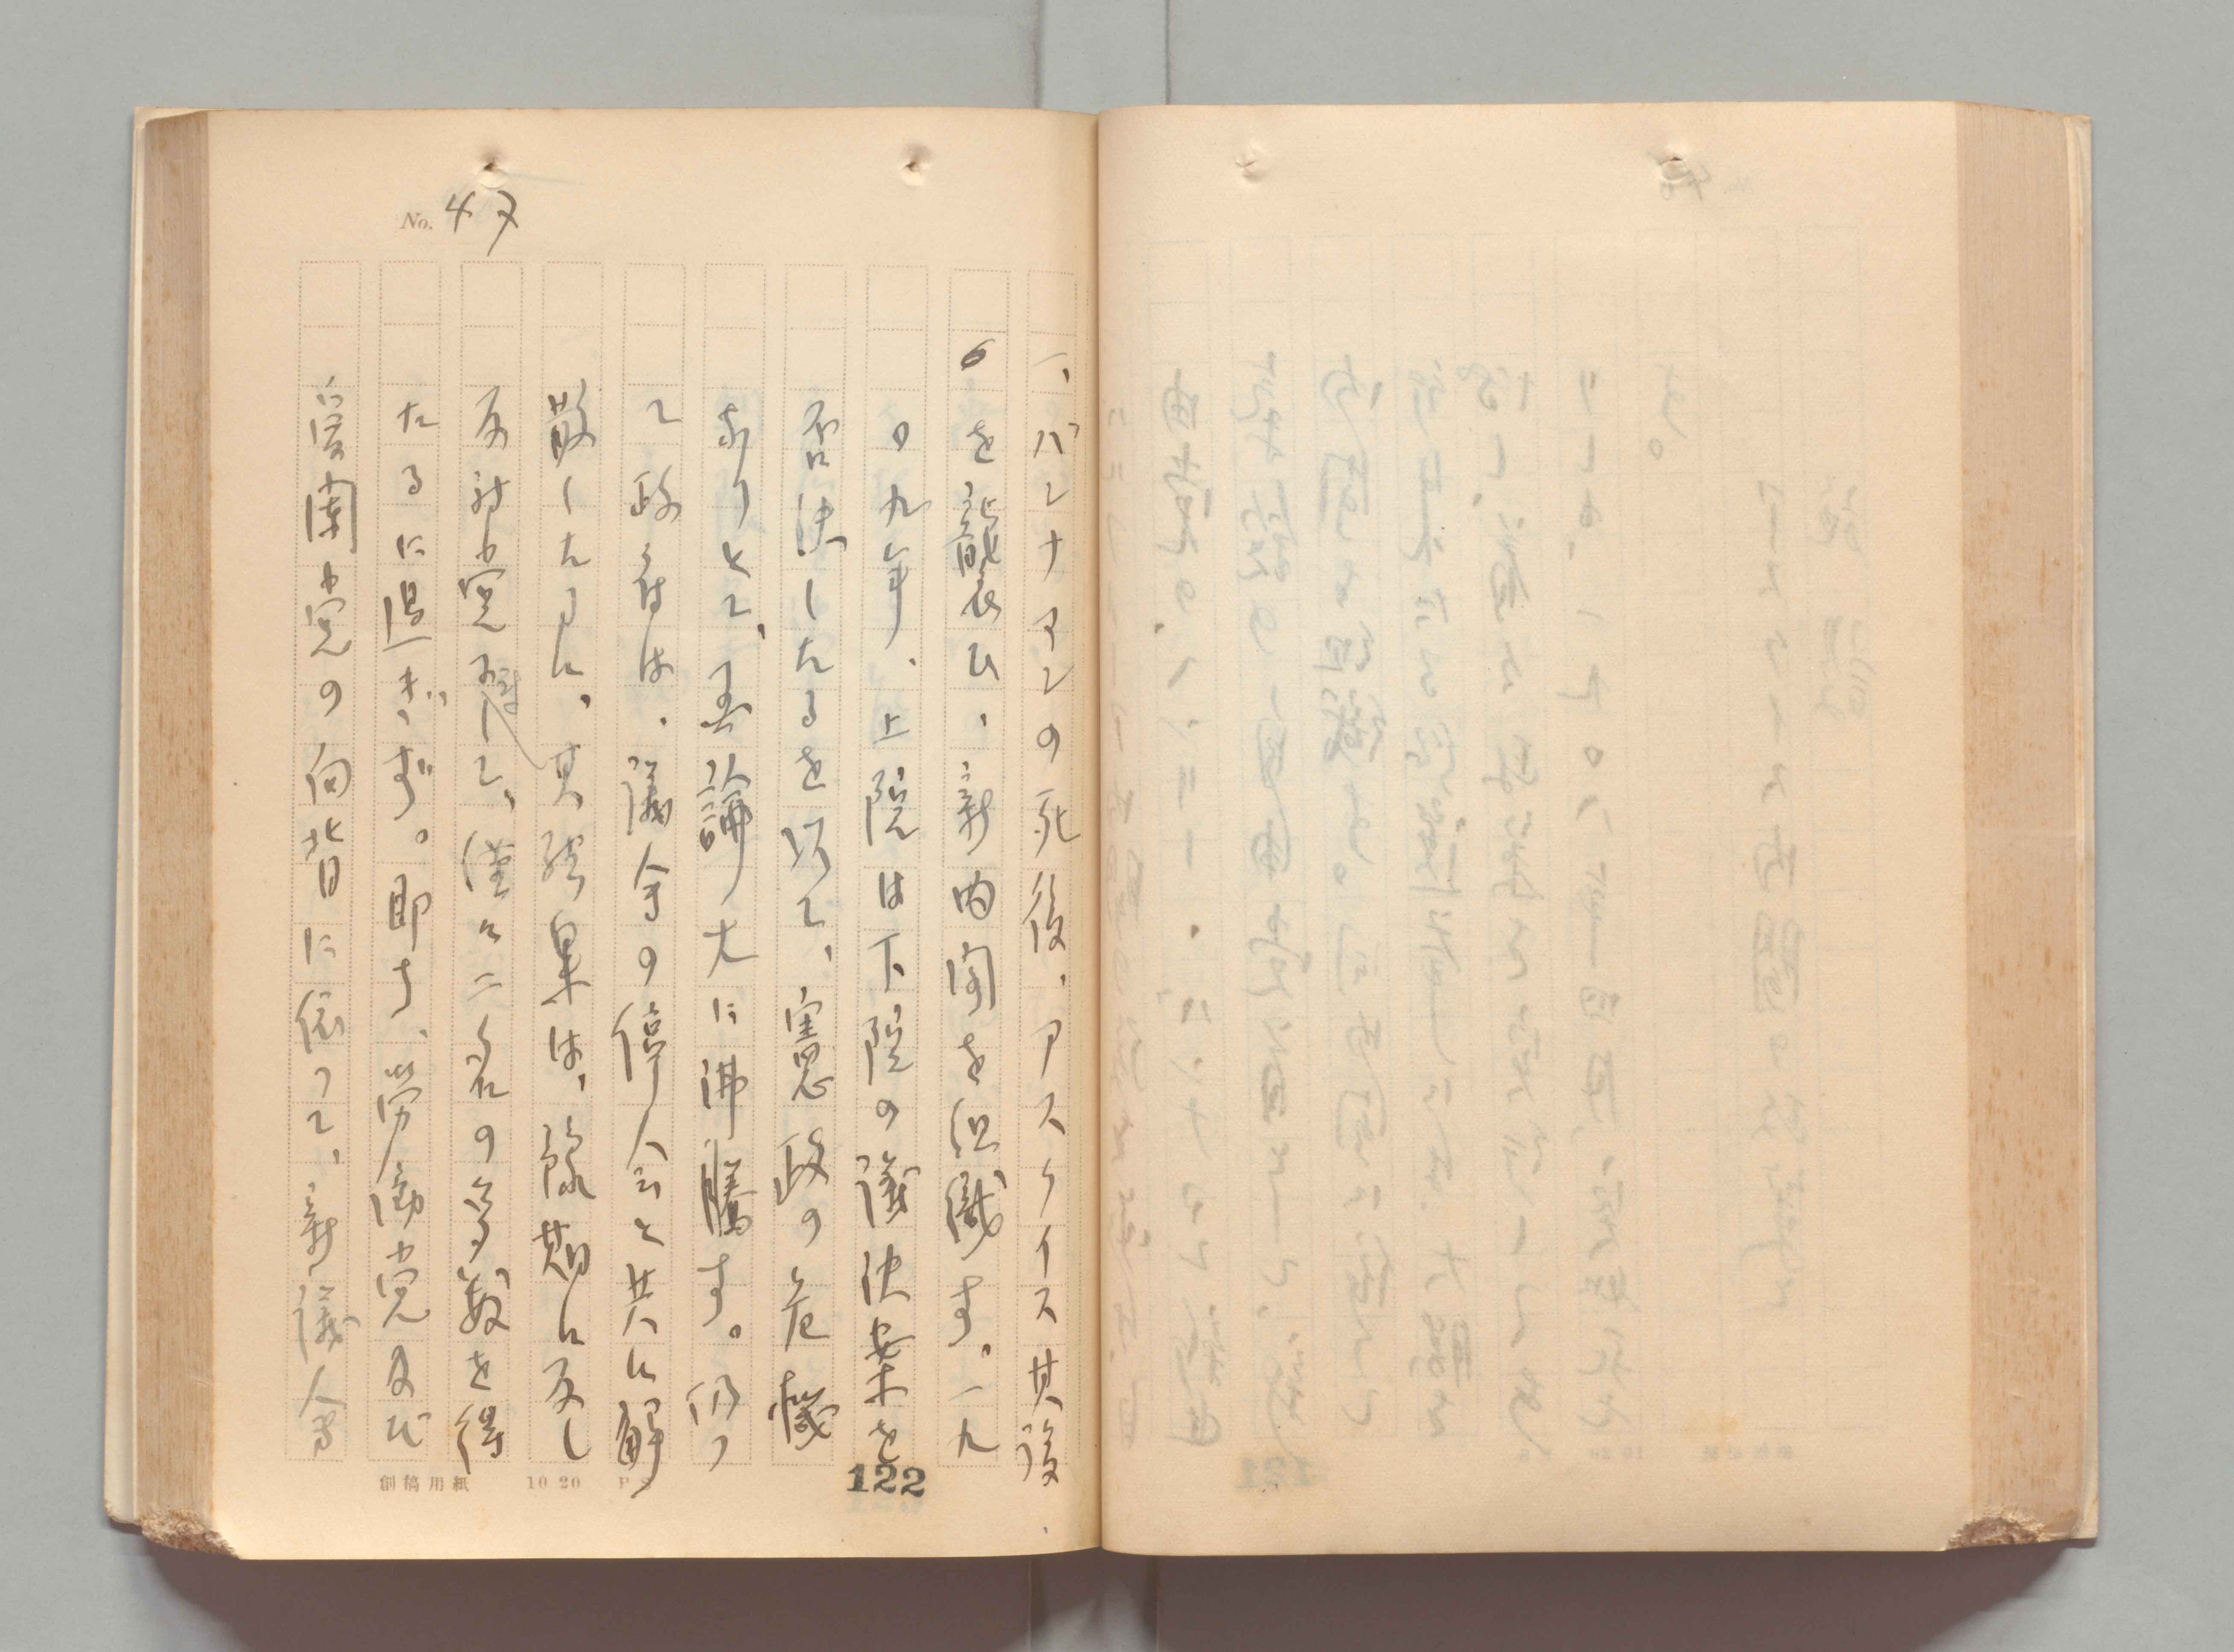 No. 47
一、バンナアマンの死後、アスクイス其後
を襲ひ、新内閣を組織す。一九
〇九年、上院は下院の議決案を
否決したるを以て、憲政の危機
ありとて、輿論大に沸騰す。仍つ
て政府は、議会の停会と共に解
散したるに、其結果は、豫期に反し
反対党に対して、僅々二名の多数を得
たるに過ぎず。即ち、労働党及び
愛蘭党の向背に依つて、新議会
122
創稿用紙 10 20